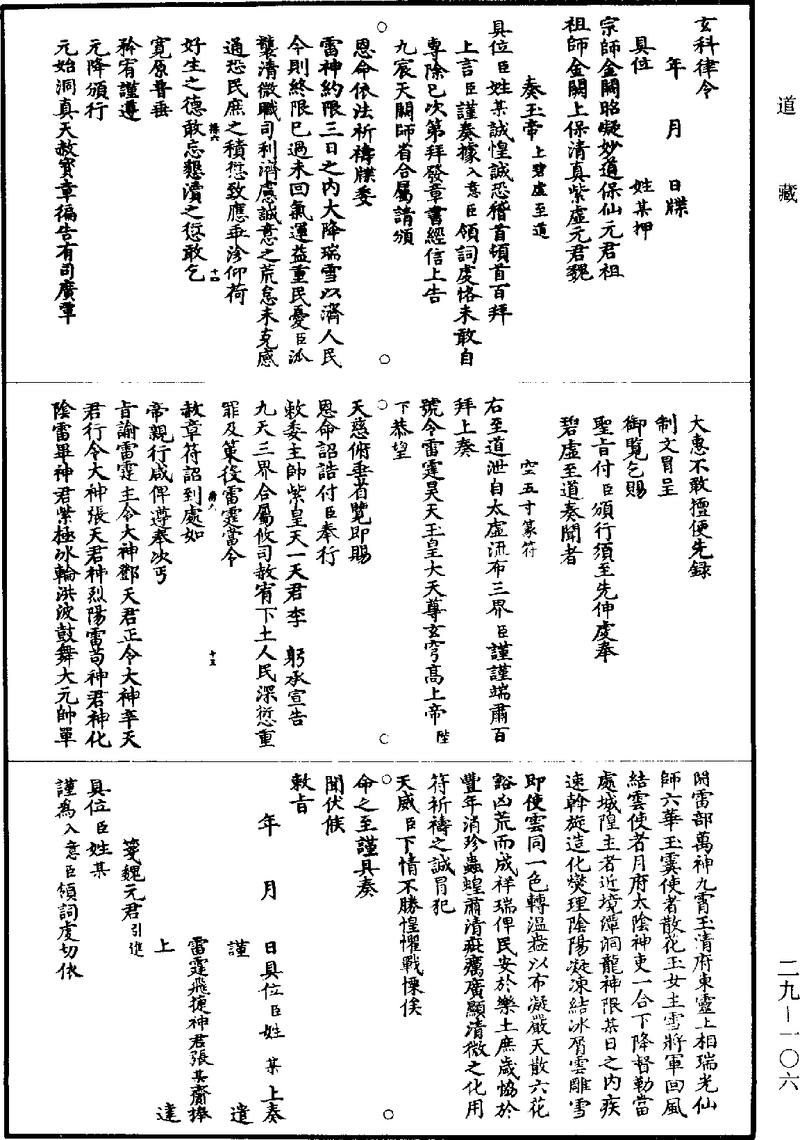 道藏
玄科律令
年 月 日牒
具位 姓某押
宗師金闕昭凝妙道保仙元君祖
祖師金闕上保清真紫虛元君魏
奏玉帝上碧虛至道
具位臣姓某誠惶誠恐稽首頓首百拜
上言臣謹奏據入意臣領詞虔恪未敢自
專除已次第拜發章書經信上告
九宸天闕師省合屬請頒
恩命依法祈禱牒委
雷神約限三日之內大降瑞雪以濟人民
今則終限已過未回氣運益重民憂臣泒
襲清微職司利濟慮誠意之荒怠未克感
通恐民庶之積愆致應乖沴仰荷
好生之德敢忘懇瀆之愆敢乞
寬原普垂
矜宥謹遵
元降頒行
元始洞真天赦寶章徧告有司廣覃
大惠不敢擅便先録
制文冐呈
御覧乞賜
聖旨付臣頒行須至先伸虔奉
碧虛至道奏聞者
空五寸篆符
右至道泄自太虛流布三界臣謹謹端肅百
拜上奏
號令雷霆昊天玉皇大天尊玄穹髙上帝陛
下恭望
天慈俯垂省覽即賜
恩命詔誥付臣奉行
敕委主帥紫皇天一天君李 躬承宣告
九天三界合屬攸司赦宥下土人民深愆重
罪及策役雷霆當今
赦章符詔到處如
帝親行咸俾遵奉次丐
旨諭雷霆主令大神鄧天君正令大神辛天
君行令大神張天君神烈陽雷苟神君神化
陰雷畢神君紫極冰輪洪波鼓舞大元帥單
閞雷部萬神九霄玉清府東靈上相瑞光仙
師六華玉霙使者散花玉女主雪將軍回風
結雲使者月府太陰神吏一合下降督勒當
處城隍主者近境潭洞龍神限某日之内疾
速斡旋造化燮理陰陽凝凍結冰屑雲雕雪
即使雲同一色轉温燕以布凝嚴天散六花
豁凶荒而成祥瑞俾民安於樂土庶歲協於
豐年消殄蟲蝗肅清疵癘廣顯清微之化用
符祈禱之誠冐犯
天威臣下情不勝惶懼戰慄俟
命之至謹具奏
聞伏候
敕旨
年 月 日具位臣姓 某上奏
謹 遣
雷霆飛捷神君張某齎捧
上 達
箋魏元君引進
具位臣姓某
謹為入意臣領詞虔切依
二九—一〇六